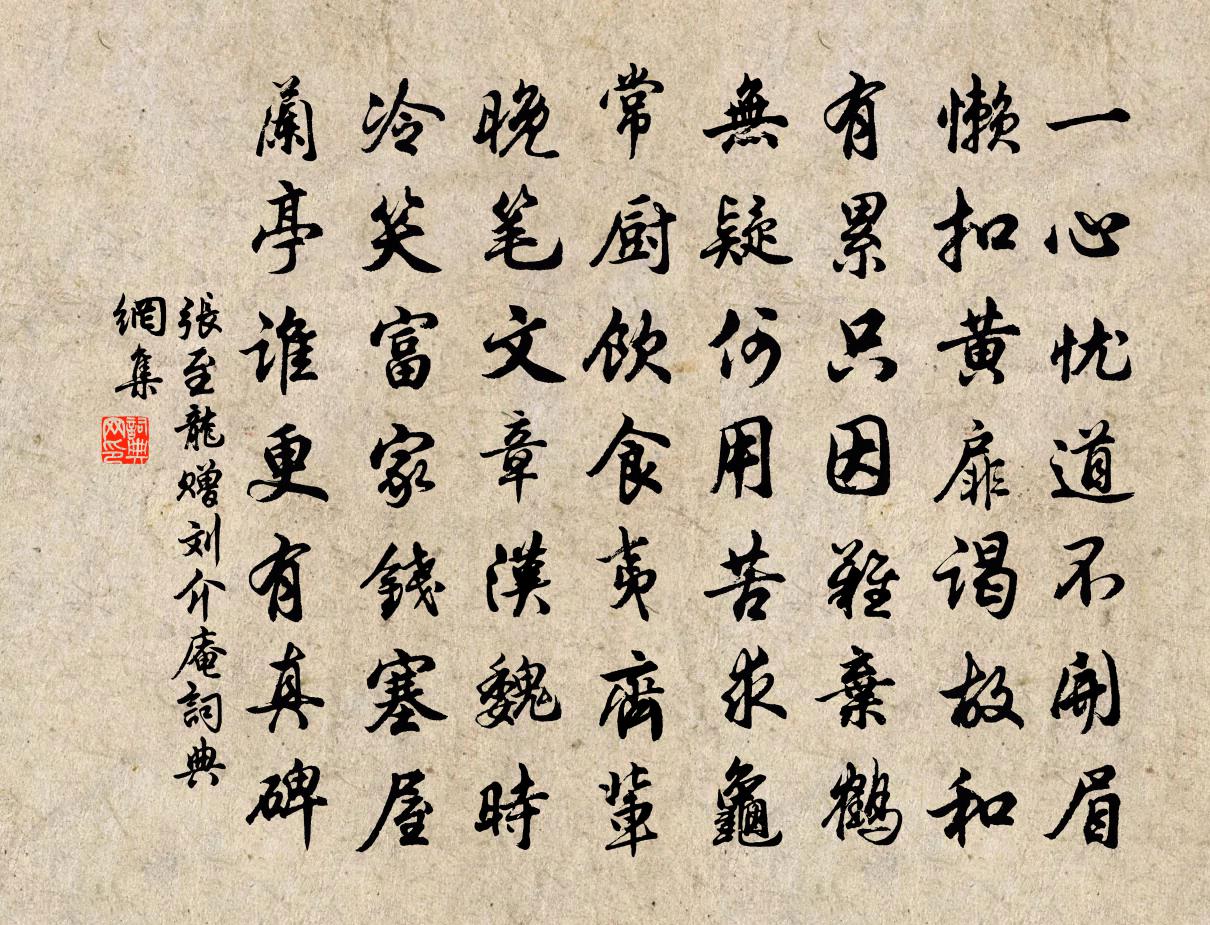 一心忧道不開眉
懒扣黄扉谒故和
有累只因難棄鶴
無疑何用苦求龜
常厨飲食夷齊輩
晚笔文章漢魏時
冷笑富家錢塞屋
蘭亭谁更有真碑
張至龍赠刘介庵詞典
網集
詞典
网印